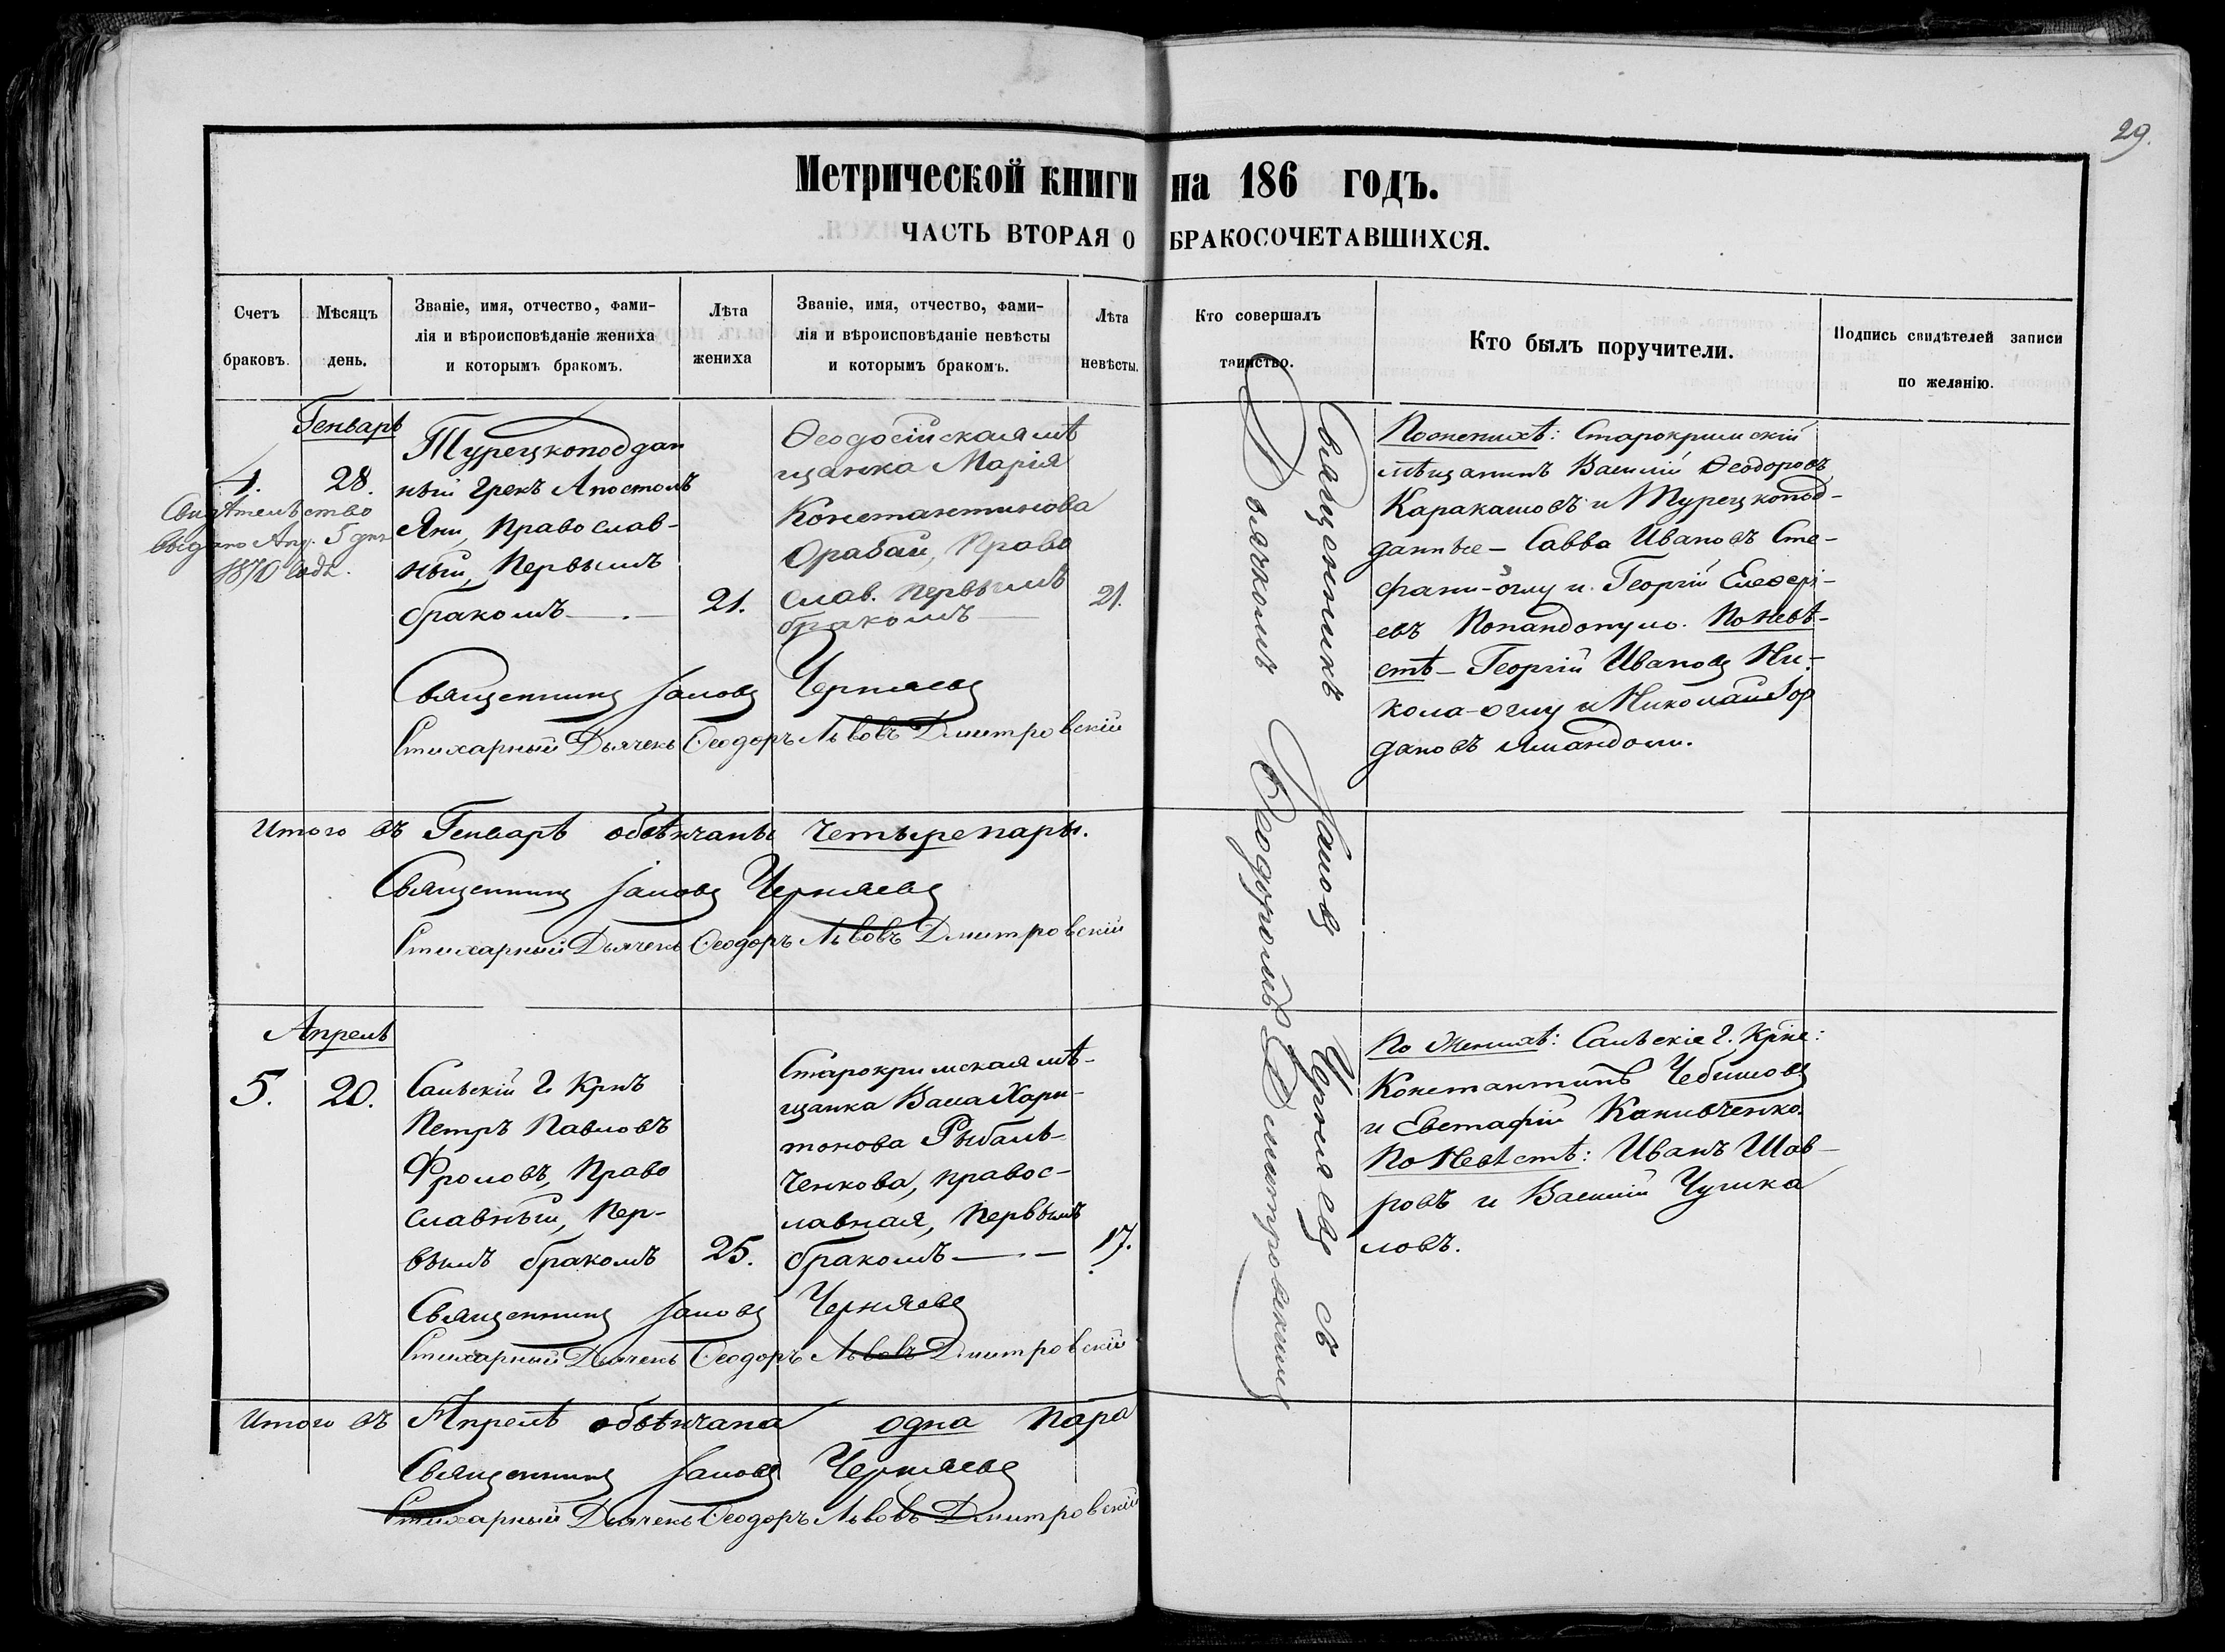 29.
Метрической книги на 186 годъ.
ЧАСТЬ ВТОРАЯ О БРАКОСОЧЕТАВШИХСЯ.
Счетъ
браковъ.
Мѣсяцъ
день.
Званіе, имя, отчество, фами-
лія и вѣроисповѣданіе жениха
и которымъ бракомъ.
Лѣта
жениха
Званіе, имя, отчество, фами-
лія и вѣроисповѣданіе невѣсты
и которымъ бракомъ.
Лѣта
невѣсты.
Кто совершалъ
таинство.
Кто былъ поручители.
Подпись свидѣтелей записи
по желанію.
Генварь
4.
28.
Свидѣтельство
выдано Апр. 5 дня
1870 года.
Турецкоподдан
ный грекъ Апостолъ
Яни, Православ-
ный, Первымъ
бракомъ —
21.
Ѳеодосійская мѣ
щанка Марія
Константинова
Орабай, Право
слав. первымъ
бракомъ —
21.
Священникъ Іаковъ Черняевъ
Стихарный Дьячекъ Ѳеодоръ Львовъ Дмитровскій
Священникъ Іаковъ Черняевъ съ
Дьячкомъ Ѳеодоромъ Дмитровскимъ
По женихѣ: Старокрымскій
мѣщанинъ Василій Ѳеодоровъ
Каракашовъ и Турецкопод-
данные — Савва Ивановъ Сте-
фани-оглу и Георгій Елевѳері-
евъ Попандопуло. По невѣ-
стѣ — Георгій Ивановъ Ни-
кола-оглу и Николай Іор
дановъ
Итого въ Генварѣ обвѣнчаны четыре пары.
Священникъ Іаковъ Черняевъ
Стихарный Дьячекъ Ѳеодоръ Львовъ Дмитровскій
Апрель
5.
20.
Сальскій Г. Крнъ
Петръ Павловъ
Фроловъ, Право
славный, Пер-
вымъ бракомъ
25.
Старокрымская мѣ-
щанка Васса Хари-
тонова Рыбаль-
ченкова, правос-
лавная, первымъ
бракомъ —
17.
Священникъ Іаковъ Черняевъ
Стихарный Дьячекъ Ѳеодоръ Львовъ Дмитровскій
По Женихѣ: Сальскіе Г. Крне:
Константинъ Чебышовъ
и Евстафій Канивченко.
По Невѣстѣ: Иванъ Шав-
ровъ и Василій Чушка
ловъ.
Итого въ Апрелѣ обвѣнчана одна пара
Священникъ Іаковъ Черняевъ
Стихарный Дьячекъ Ѳеодоръ Львовъ Дмитровскій